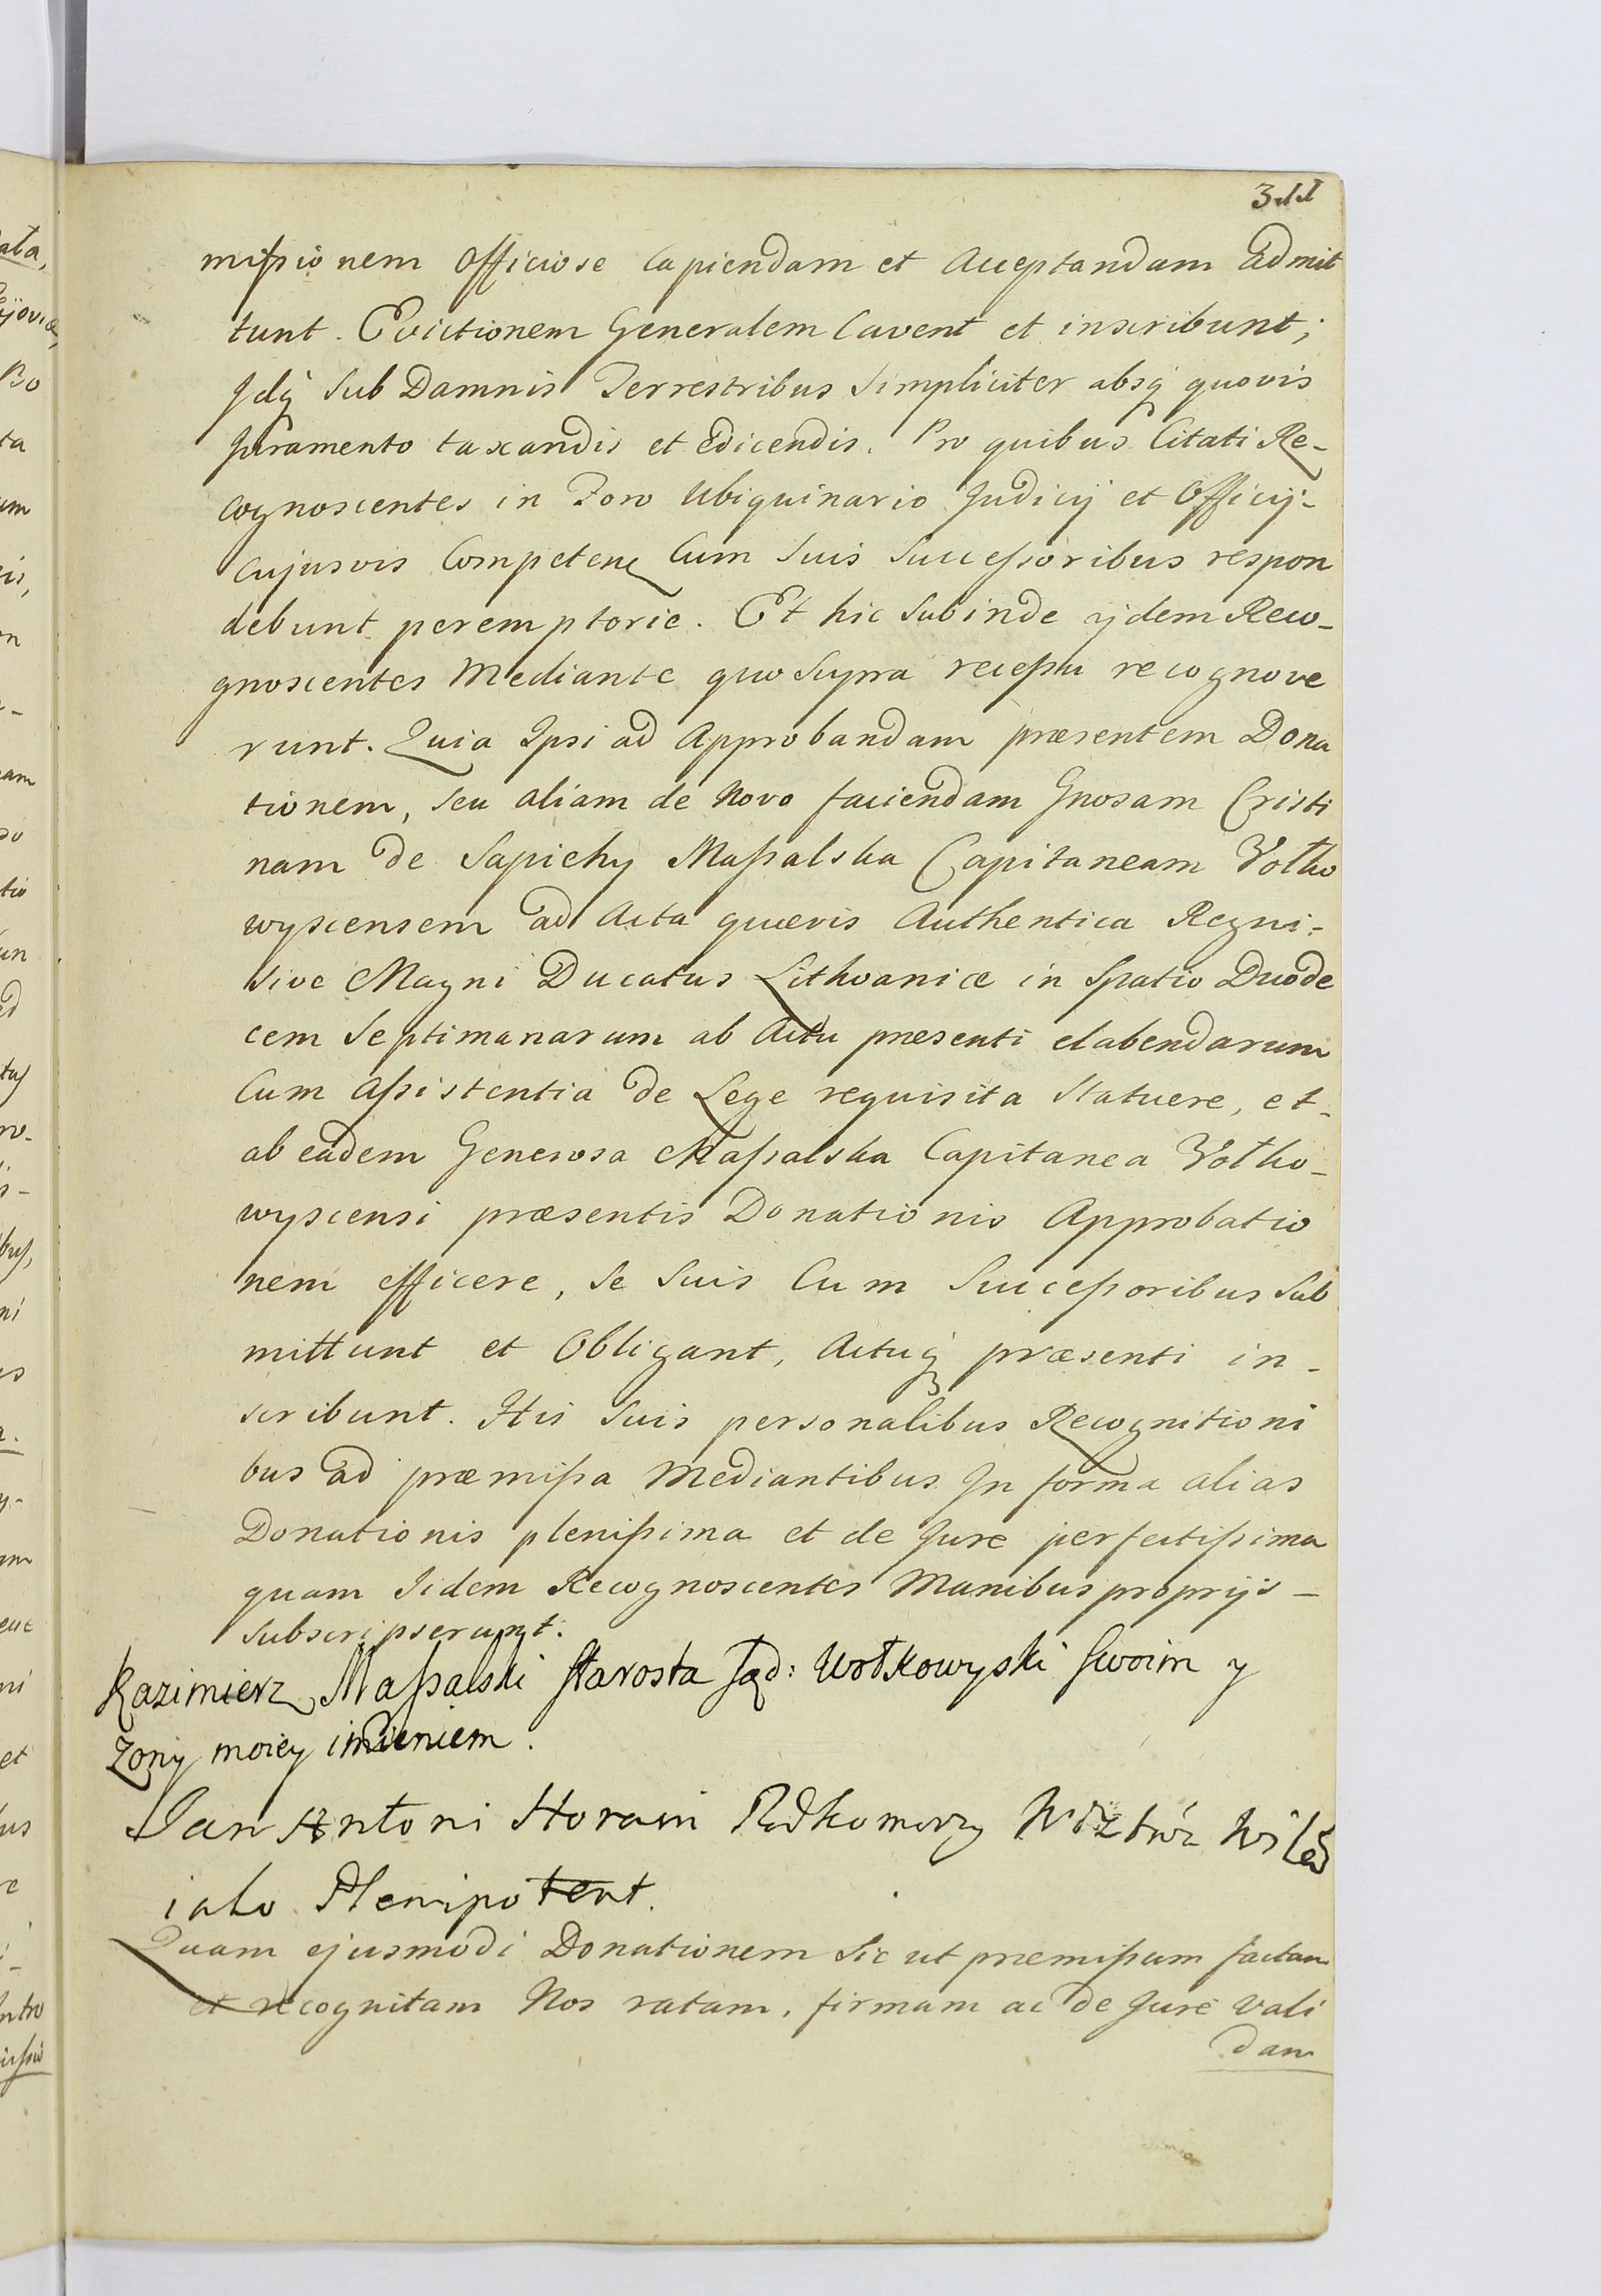 311
missionem Officiose Capiendam et Acceptandam Admit
tunt. Evictionem Generalem Cavent et inscribunt;
Idq́ Sub Damnis Terrestribus Simpliciter absq́ quovis
Juramento taxandis et Edicendis. Pro quibus Citati Re-
cognoscentes in Foro Ubiquinario Judicij et Officij-
Cujusvis Competenẹ Cum Suis Successoribus respon
debunt peremptorie. Et hic Subinde ijdem Reco-
gnoscentes Mediante quo Supra recessu recognove
runt. Quia Ipsi ad Approbandam præsentem Dona
tionem, seu aliam de Novo faciendam Gnosam Cristi
nam de Sapiehy Massalska Capitaneam Vołko
wyscensem ad Acta quævis Authentica Regni-
sive Magni Ducatus Lithvaniæ in Spatio Duode
cem Septimanarum ab Actu præsenti elabendarum
Cum Assistentia de Lege requisita Statuere, et-
ab eadem Generosa Massalska Capitanea Vołko-
wyscensi præsentis Donationis Approbatio
nem efficere, se Suis Cum Successoribus Sub
mittunt et Obligant, Actuq́ præsenti in-
scribunt. His Suis personalibus Recognitioni
bus ad præmissa Mediantibus In forma alias
Donationis plenissima et de Jure perfectissima
quam Iidem Recognoscentes Manibus proprijs-
Subscripserunt.
Kazimierz Massalski starosta sąd: Wołkowyski swoim y
zony moiey imieniem.
Jan Antoni Horain Podkomorzy
iako Plenipotent.
Quam ejusmodi Donationem Sic ut præmissum factam
et recognitam Nos ratam, firmam ac de Jure Vali
dam